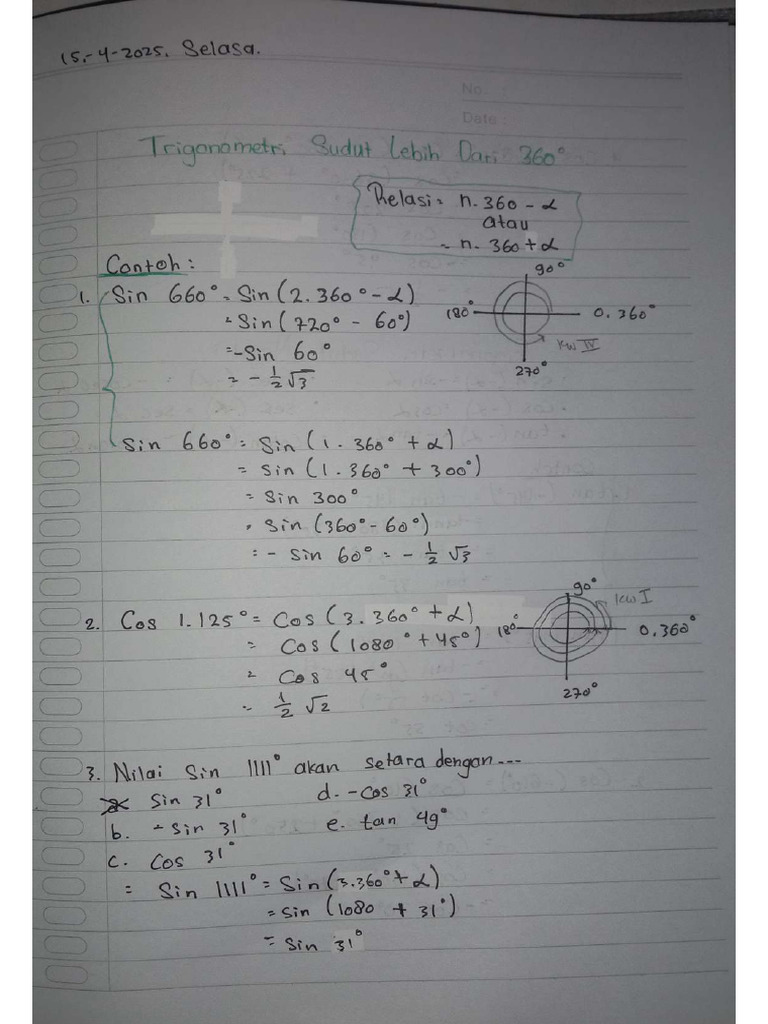 15.-4-2025. Selasa.
No. :
Date :
Trigonometri Sudut Lebih Dari 360°
Relasi = n. 360 - α
atau
= n. 360 + α
Contoh :
1. Sin 660° = Sin (2. 360° - α)
= Sin (720° - 60°)
= -Sin 60°
= - 1/2 √3
90°
180°
0. 360°
kw IV
270°
Sin 660° = Sin (1. 360° + α)
= Sin (1. 360° + 300°)
= Sin 300°
= Sin (360° - 60°)
= - Sin 60° = - 1/2 √3
2. Cos 1.125° = Cos (3. 360° + α)
= Cos (1080° + 45°)
= Cos 45°
= 1/2 √2
90°
kw I
180°
0.360°
270°
3. Nilai Sin 1111° akan setara dengan ...
a. Sin 31° d. -Cos 31°
b. - Sin 31° e. tan 49°
c. Cos 31°
= Sin 1111° = Sin (3.360° + α)
= Sin (1080 + 31°)
= Sin 31°